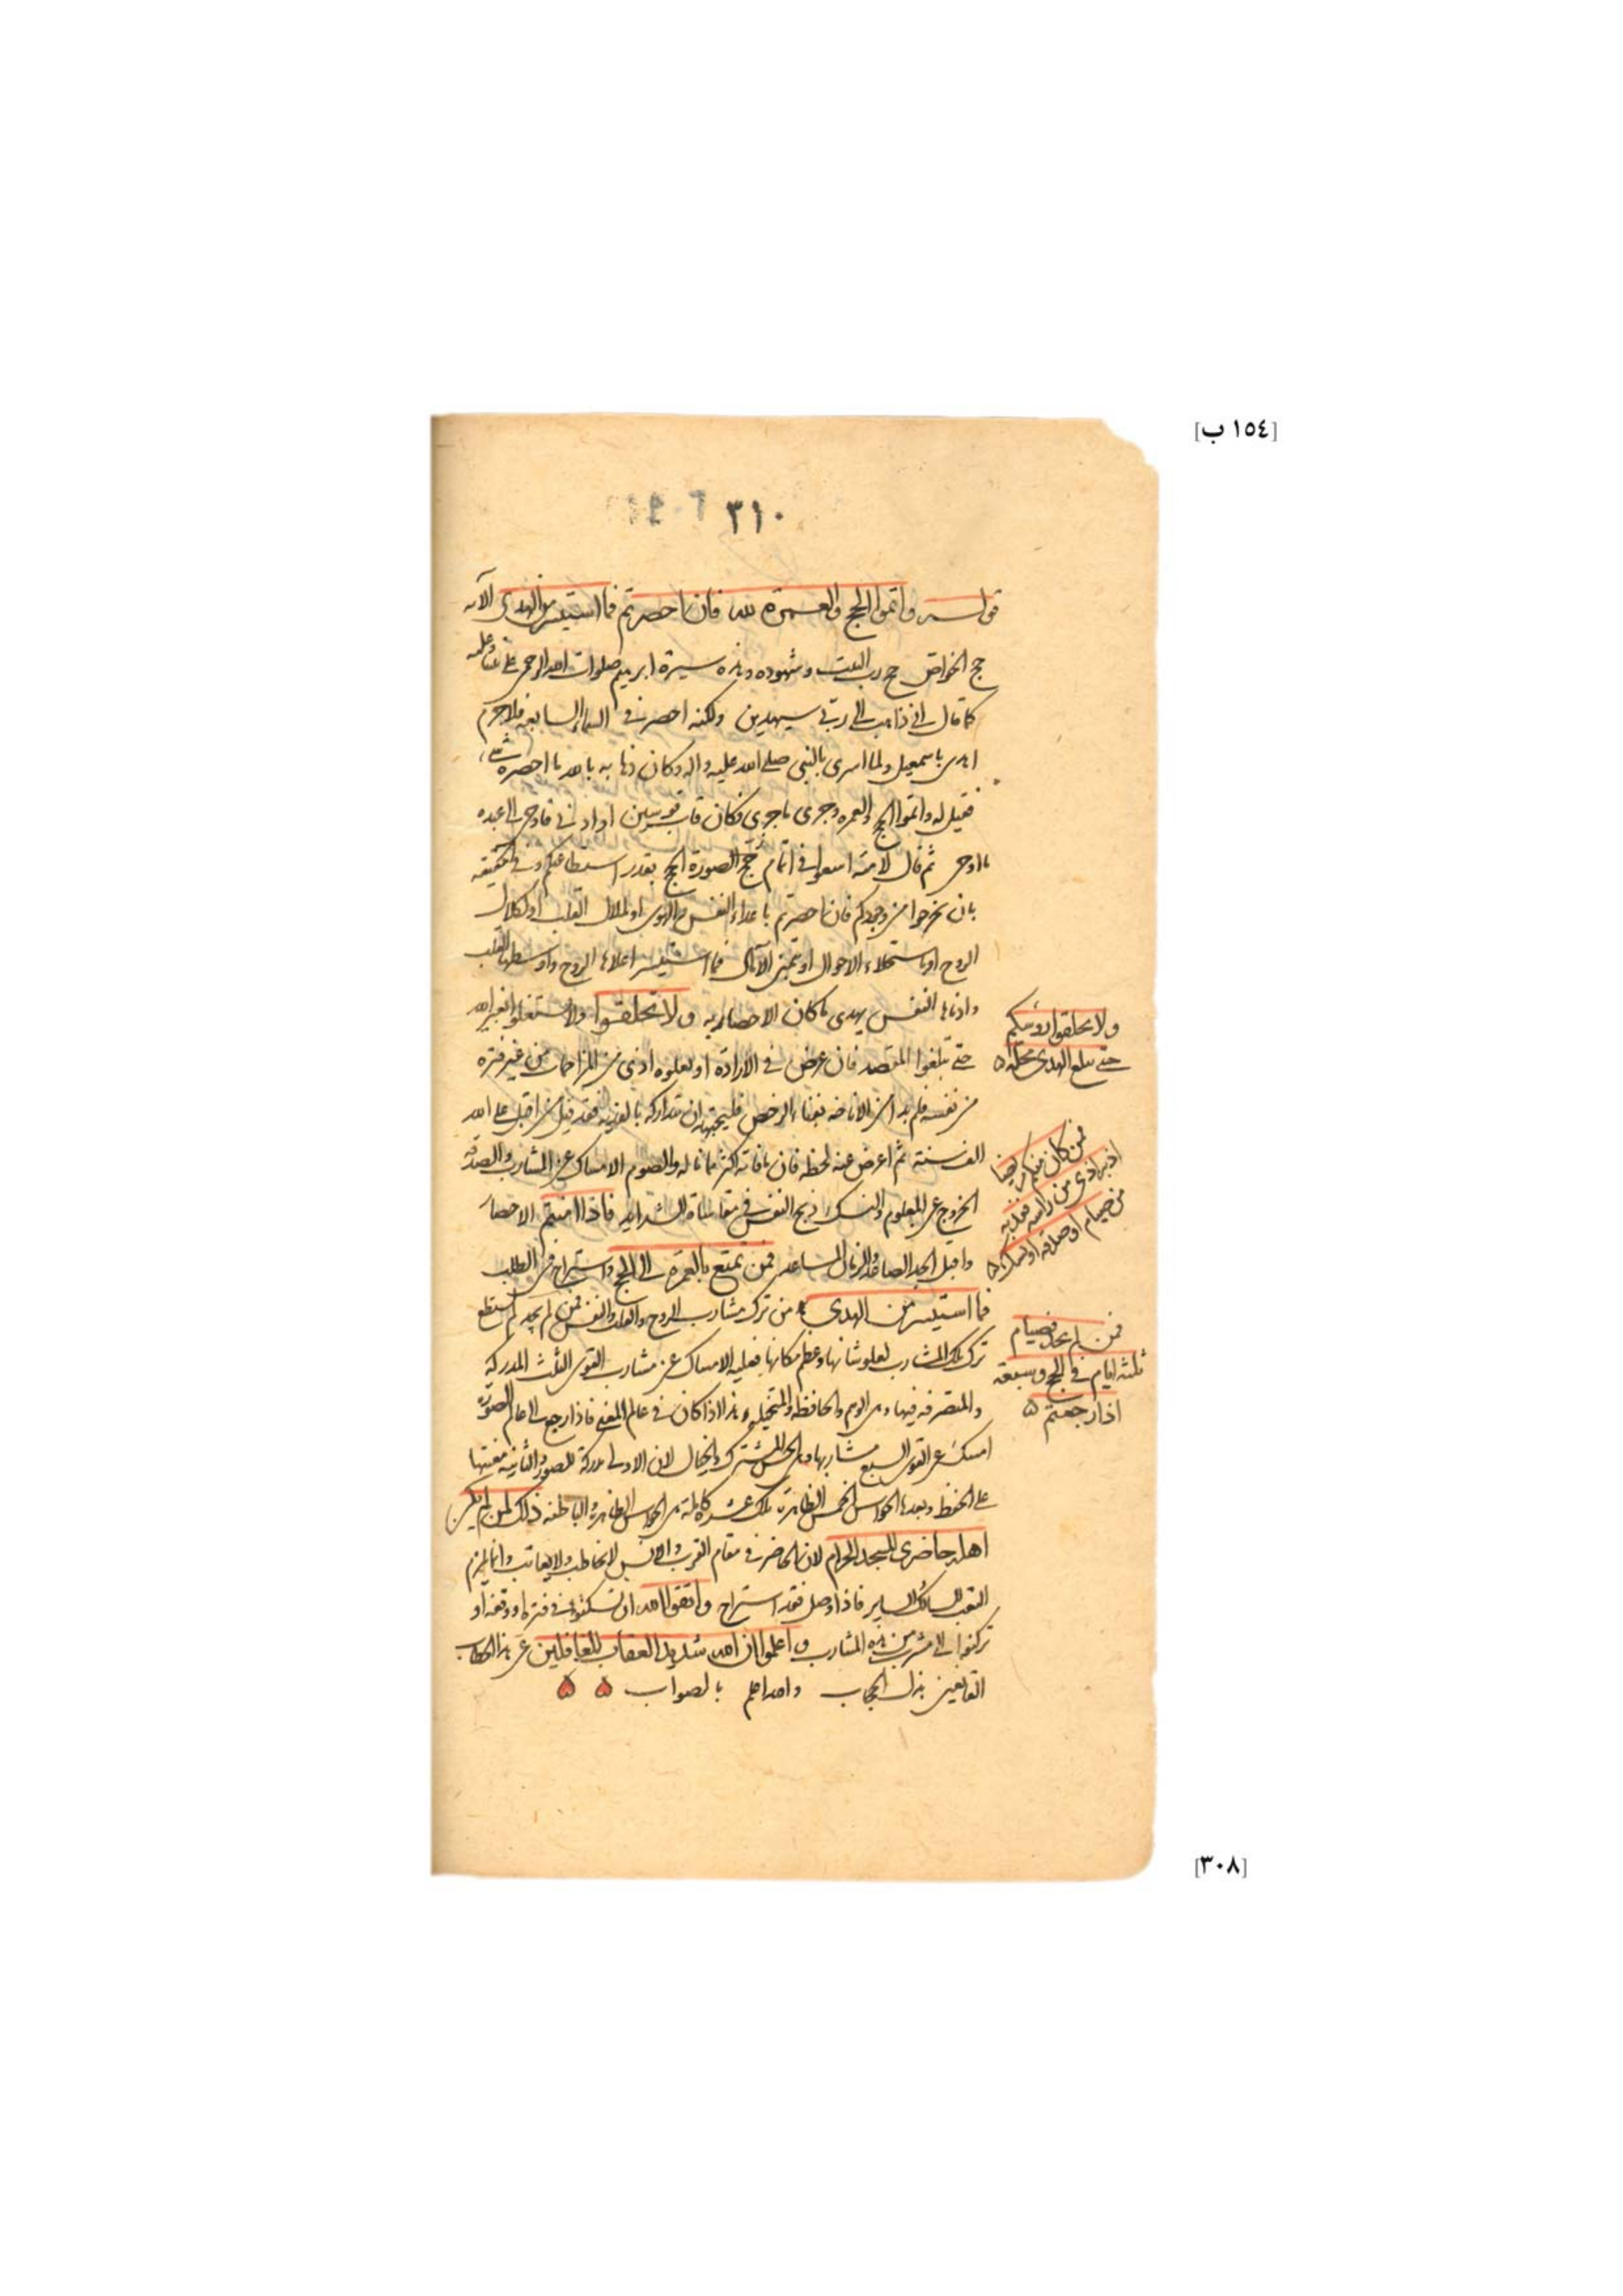 [١٥٤ ب]
٣١٠
قوله واتموا الحج والعمرة لله فان احصرتم فما استيسر من الهدى الآيه
حج الخواص حج رب البيت وشهوده وهذه سيرة ابرهيم صلوات الله الرحمن على نبينا وعليه
كما قال انى ذاهب الى ربى سيهدين ولكنه احصر فى السماء السابعه فلا جرم
اهدى باسمعيل ولما اسرى بالنبى صلى الله عليه واله وكان ذهابه بالله ما احصره شىء
فقيل له واتموا الحج والعمره وجرى ما جرى فكان قاب قوسين او ادنى فاوحى الى عبده
ما اوحى ثم قال لامته اسعوا فى اتمام حج الصورة الحج بقدر استطاعتكم وفى الحقيقه
بان تخرجوا من وجودكم فان احصرتم باعداء النفس والهوى او لملال القلب او لكلال
الروح او باستحلاء الاحوال او تمنى الآمال فما استيسر اعلاها الروح واوسطها القلب
وادناها النفس يهدى ما كان الاحصار به ولا تحلقوا ولا تشتغلوا بغير الله
حتى تبلغوا المقصد فان عرض فى الارادة او يعلوه اذى من المزاحمات من غير فتره
من نفسه فلم بد من الاناخه بفناء الرخص فليجتهد ان يتداركه بالفديه فقد قيل من اقبل على الله
الف سنة ثم اعرض عنه لحظه فان ما فاته اكثر مما ناله والصوم الامساك عن المشارب والصدقه
الخروج عن المعلوم والنسك ذبح النفس فى مقاساة الشدايد فاذا امنتم الاحصار
واقبل الجد الصاعد والزمان المساعد فمن تمتع بالعمرة الى الحج واستراح فى الطلب
فما استيسر من الهدى من ترك مشارب الروح والقلب والنفس فمن لم يجد لم يستطع
ترك تلك المشارب لعلو شانها وعظم مكانها فعليه الامساك عن مشارب القوى الثلث المدركة
والمتصرفه فيها وهى الوهم والحافظه والمتخيله وهذا اذا كان فى عالم المعنى فاذا رجع الى عالم الصورة
امسك عن القوى السبع مشاربها وهى الحس المشترك والخيال لان الاولى مدركة للصور والثانيه معينتها
على الحفظ وبعدها الحواس الخمس الظاهرة تلك عشرة كاملة هى الحواس الظاهرة والباطنه ذلك لمن لم يكن
اهله حاضرى المسجد الحرام لان الحاضر فى مقام القرب والانس لا يخاطب ولا يعاتب وانما يلزم
التعب للسالك الساير فاذا وصل فقد استراح واتقوا الله ان تسكنوا فى فتره او وقفه او
تركنوا الى مشرب من هذه المشارب واعلموا ان الله شديد العقاب للغافلين عن هذا الخطاب
القانعين بذل الحجاب والله اعلم بالصواب
ولا تحلقوا رؤسكم
حتى يبلغ الهدى محله
فمن كان منكم مريضا
او به اذى من راسه ففديه
من صيام او صدقه او نسك
فمن لم يجد فصيام
ثلثه ايام فى الحج وسبعة
اذا رجعتم
[٣٠٨]